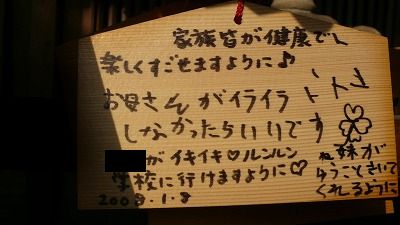 家族皆が健康で
楽しくすごせますように♪
お母さんがイライラ
しなかったらいいです
がイキイキ♡ルンルン
学校に行けますように♡
2009.1.8
妹が
ゆうこときいて
くれるように